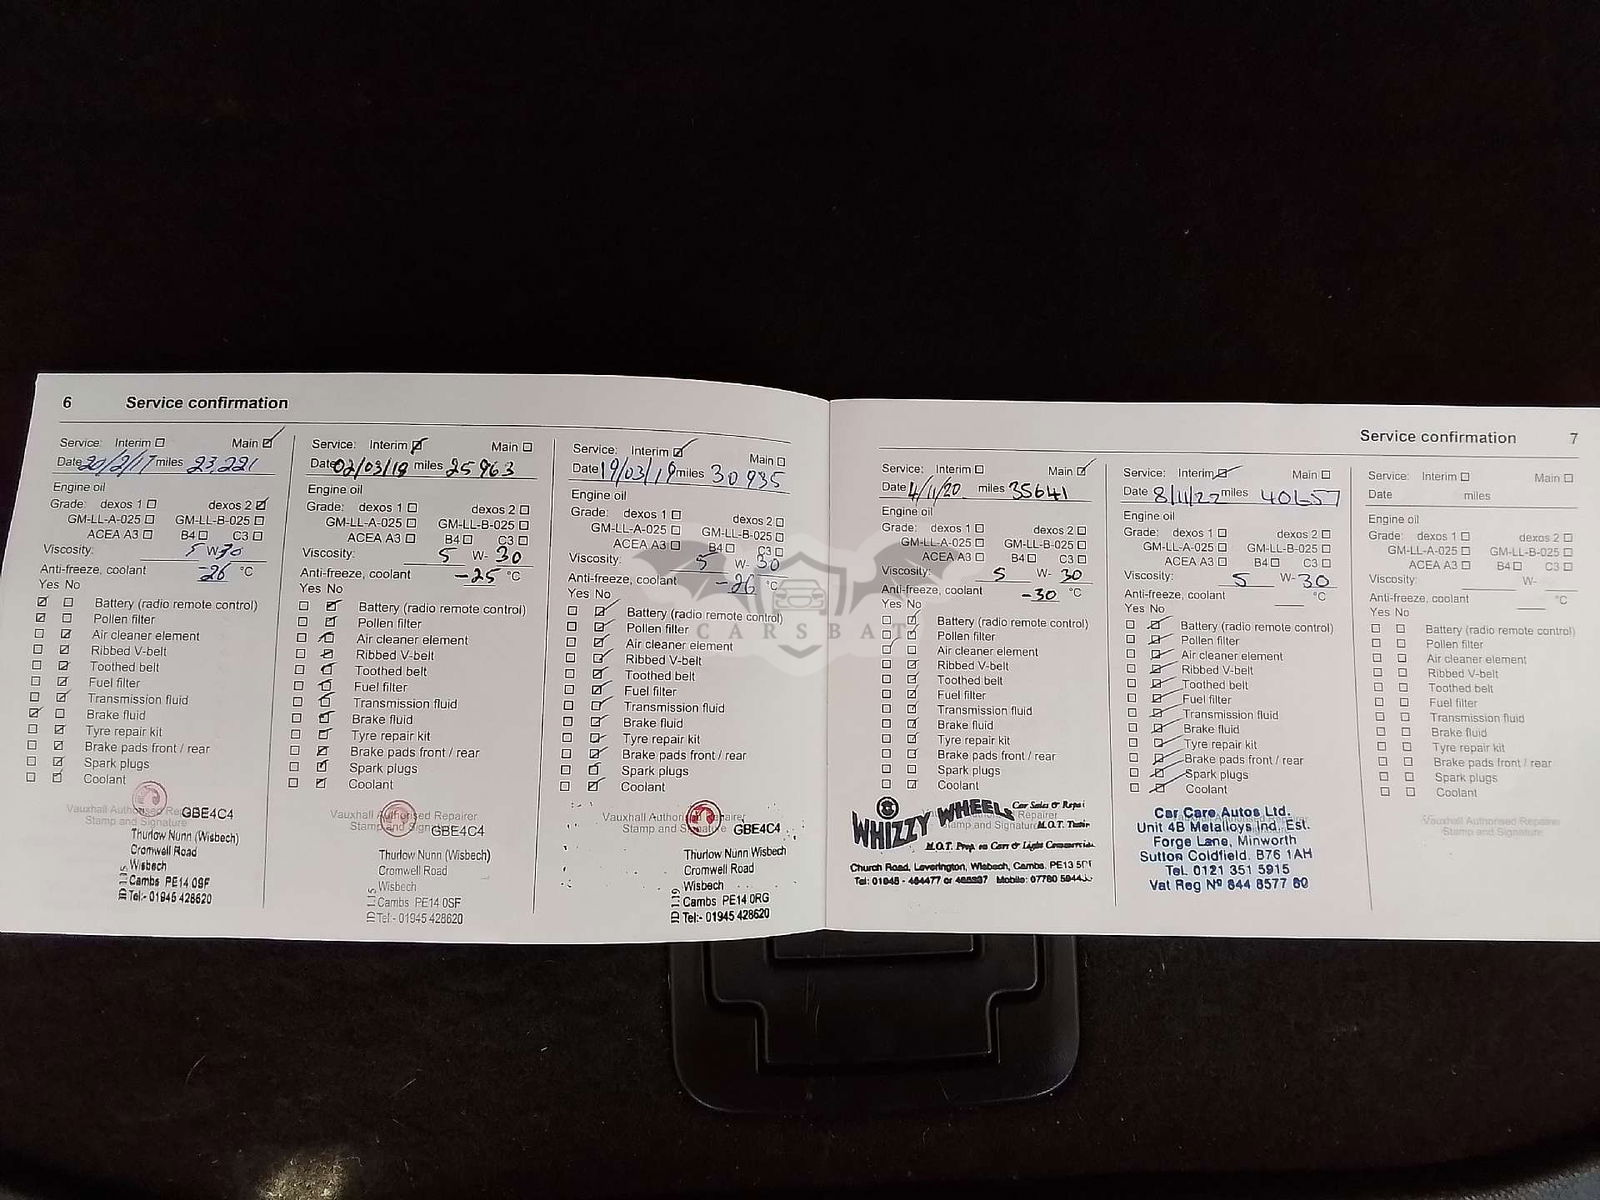 6 Service confirmation
Service: Interim Main
Date 20/2/17 miles 23,221
Engine oil
Grade: dexos 1 dexos 2
GM-LL-A-025 GM-LL-B-025
ACEA A3 B4 C3
Viscosity: 5 W-30
Anti-freeze, coolant -26 °C
Yes No
Battery (radio remote control)
Pollen filter
Air cleaner element
Ribbed V-belt
Toothed belt
Fuel filter
Transmission fluid
Brake fluid
Tyre repair kit
Brake pads front / rear
Spark plugs
Coolant
Vauxhall Authorised Repairer
Stamp and Signature
GBE4C4
Thurlow Nunn (Wisbech)
Cromwell Road
Wisbech
Cambs PE14 0SF
Tel:- 01945 428620
Service: Interim Main
Date 02/03/18 miles 25963
Engine oil
Grade: dexos 1 dexos 2
GM-LL-A-025 GM-LL-B-025
ACEA A3 B4 C3
Viscosity: 5 W- 30
Anti-freeze, coolant -25 °C
Yes No
Battery (radio remote control)
Pollen filter
Air cleaner element
Ribbed V-belt
Toothed belt
Fuel filter
Transmission fluid
Brake fluid
Tyre repair kit
Brake pads front / rear
Spark plugs
Coolant
Vauxhall Authorised Repairer
Stamp and Signature
GBE4C4
Thurlow Nunn (Wisbech)
Cromwell Road
Wisbech
Cambs PE14 0SF
Tel:- 01945 428620
Service: Interim Main
Date 19/03/19 miles 30935
Engine oil
Grade: dexos 1 dexos 2
GM-LL-A-025 GM-LL-B-025
ACEA A3 B4 C3
Viscosity: 5 W- 30
Anti-freeze, coolant -26 °C
Yes No
Battery (radio remote control)
Pollen filter
Air cleaner element
Ribbed V-belt
Toothed belt
Fuel filter
Transmission fluid
Brake fluid
Tyre repair kit
Brake pads front / rear
Spark plugs
Coolant
Vauxhall Authorised Repairer
Stamp and Signature
GBE4C4
Thurlow Nunn Wisbech
Cromwell Road
Wisbech
Cambs PE14 0RG
Tel:- 01945 428620
CARSBAT
Service confirmation 7
Service: Interim Main
Date 4/11/20 miles 35641
Engine oil
Grade: dexos 1 dexos 2
GM-LL-A-025 GM-LL-B-025
ACEA A3 B4 C3
Viscosity: 5 W- 30
Anti-freeze, coolant -30 °C
Yes No
Battery (radio remote control)
Pollen filter
Air cleaner element
Ribbed V-belt
Toothed belt
Fuel filter
Transmission fluid
Brake fluid
Tyre repair kit
Brake pads front / rear
Spark plugs
Coolant
Stamp and Signature
WHIZZY WHEELS Car Sales & Repai
M.O.T.
M.O.T. Prep on Cars & Light Commercials
Church Road, Leverington, Wisbech, Cambs. PE13 5
Tel: 01945 - 464477 or Mobile: 07780
Service: Interim Main
Date 8/11/22 miles 40657
Engine oil
Grade: dexos 1 dexos 2
GM-LL-A-025 GM-LL-B-025
ACEA A3 B4 C3
Viscosity: 5 W- 30
Anti-freeze, coolant °C
Yes No
Battery (radio remote control)
Pollen filter
Air cleaner element
Ribbed V-belt
Toothed belt
Fuel filter
Transmission fluid
Brake fluid
Tyre repair kit
Brake pads front / rear
Spark plugs
Coolant
Car Care Autos Ltd.
Unit 4B Metalloys Ind. Est.
Forge Lane, Minworth
Sutton Coldfield. B76 1AH
Tel. 0121 351 5915
Vat Reg Nº 844 8577 60
Service: Interim Main
Date miles
Engine oil
Grade: dexos 1 dexos 2
GM-LL-A-025 GM-LL-B-025
ACEA A3 B4 C3
Viscosity: W-
Anti-freeze, coolant °C
Yes No
Battery (radio remote control)
Pollen filter
Air cleaner element
Ribbed V-belt
Toothed belt
Fuel filter
Transmission fluid
Brake fluid
Tyre repair kit
Brake pads front / rear
Spark plugs
Coolant
Vauxhall Authorised Repairer
Stamp and Signature